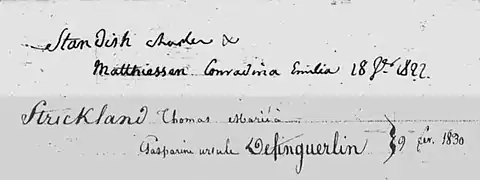 Standish Charles &
Matthiessen Conradina Emilia 18 8bre 1822.
Strickland Thomas Maria
Gasparine ursule Desinguerlin } 9 fev. 1830